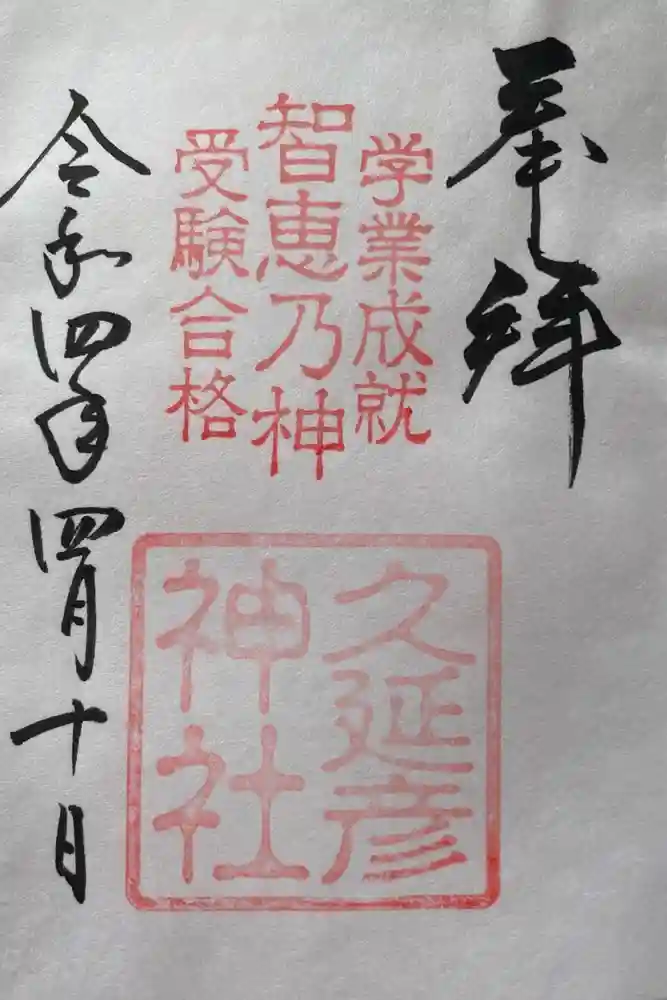 奉拝
学業成就
智恵乃神
受験合格
久延彦
神社
令和四年四月十日